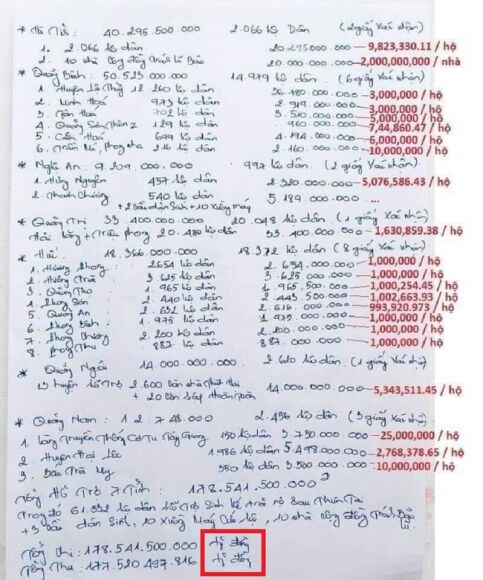 * Hà Tĩnh: 40.295.500.000 2.066 hộ Dân (2 giấy Xác nhận)
1. 2.066 hộ dân 20.295.000.000 9,823,330.11 / hộ
2. 10 nhà Cộng đồng Tránh lũ Bão 20.000.000.000 2,000,000,000 / nhà
* Quảng Bình: 50.523.000.000 14 979 hộ dân (6 giấy Xác nhận)
1. Huyện Lệ Thủy 12 260 hộ dân 36.780.000.000 3,000,000 / hộ
2. Minh Hoá 973 hộ dân 2.919.000.000 3,000,000 / hộ
3. Tân Hoá 702 hộ dân 3.510.000.000 5,000,000 / hộ
4. Quảng Sơn, Thôn 2 129 hộ dân 960.000.000 7,44,860.47 / hộ
5. Cảnh Hoá 699 hộ dân 4.194.000.000 6,000,000 / hộ
6. 216 hộ dân 2.160.000.000 10,000,000 / hộ
* Nghệ An: 9.209.000.000 997 hộ dân. (2 giấy Xác nhận)
1. Hưng Nguyên 457 hộ dân 2.320.000.000 5,076,586.43 / hộ
2. Thanh Chương 540 hộ dân 5.189.000.000 ...
+ 2 dân Sinh + 10 Xuồng máy
* Quảng Trị 33.400.000.000 20.048 hộ dân (1 giấy Xác nhận)
Hải Lăng + Triệu Phong 20.480 hộ dân 33.400.000.000 1,630,859.38 / hộ
* Huế: 18.366.000.000 18.372 hộ dân (8 giấy Xác nhận)
1. Hương Phong: 2654 hộ dân 2.654.000.000 1,000,000 / hộ
2. Hương Trà 3.625 hộ dân 3.625.000.000 1,000,000 / hộ
3. Quảng Thọ 1.965 hộ dân 1.965.500.000 1,000,254.45 / hộ
4. Phong Sơn 2.440 hộ dân 2.445.500.000 1,002,663.93 / hộ
5. Quảng An 2.632 hộ dân 2.616.000.000 993,920.973 / hộ
6. Phong Bình 1.975 hộ dân 1.975.000.000 1,000,000 / hộ
7. Phong Chương 2.200 hộ dân 2.200.000.000 1,000,000 / hộ
8. Phong Thu 887 hộ dân 887.000.000 1,000,000 / hộ
* Quảng Ngãi 14.000.000.000 2.620 hộ dân (1 giấy Xác nhận)
13 huyện hỗ Trợ 2.600 Căn nhà Thiệt hại 14.000.000.000 5,343,511.45 / hộ
+ 20 Căn Sập Hoàn toàn
* Quảng Nam: 12.748.000 2.456 hộ dân (3 giấy Xác nhận)
1. Làng Truyền Thống CơTu Tây Giang 150 hộ dân 3.750.000.000 25,000,000 / hộ
2. Huyện Đại Lộc 1986 hộ dân 5.498.000.000 2,768,378.65 / hộ
3. Bắc Trà My 350 hộ dân 3.500.000.000 10,000,000 / hộ
Tổng Hỗ Trợ 7 Tỉnh: 178.541.500.000
Trong đó 61.532 hộ dân hỗ Trợ Sinh kế trả nợ Sau Thiên Tai
+ 3 dân Sinh, 10 Xuồng Máy Cứu hộ, 10 nhà Cộng đồng Tránh Bão lũ
Tổng Chi: 178.541.500.000 tỷ đồng
Tổng Thu: 177.520.497.816 tỷ đồng